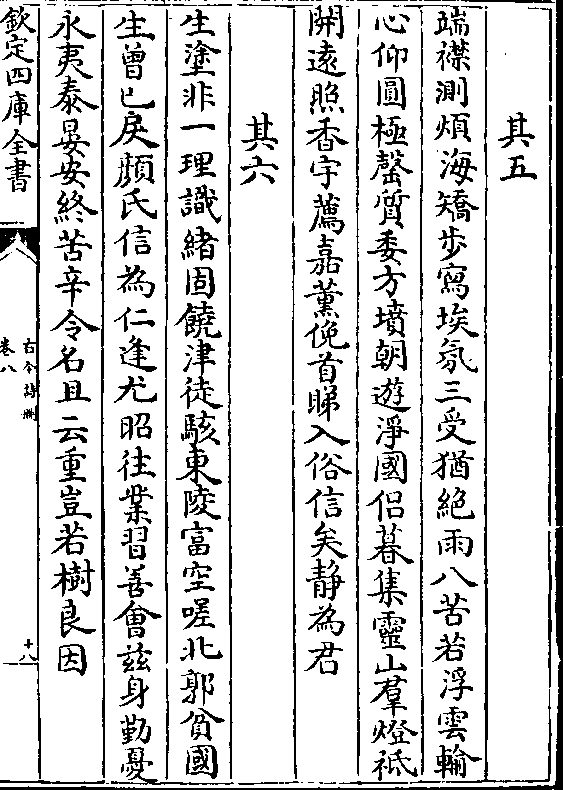 其五
端襟測煩海矯步寫埃氛三受猶絶雨八苦若浮雲輪
心仰圓極罄質委方墳朝遊淨國侣暮集靈山羣燈祗
開遠照香宇薦嘉薰俛首睇入俗信矣静為君
其六
生塗非一理識緒固饒津徒駭東陵富空嗟北郭貧國
生曾已戾顔氏信為仁逢尤昭往業習善會兹身勤憂
永夷泰晏安終苦辛令名且云重豈若樹良因
欽定四庫全書
古今詩刪
卷八
十八